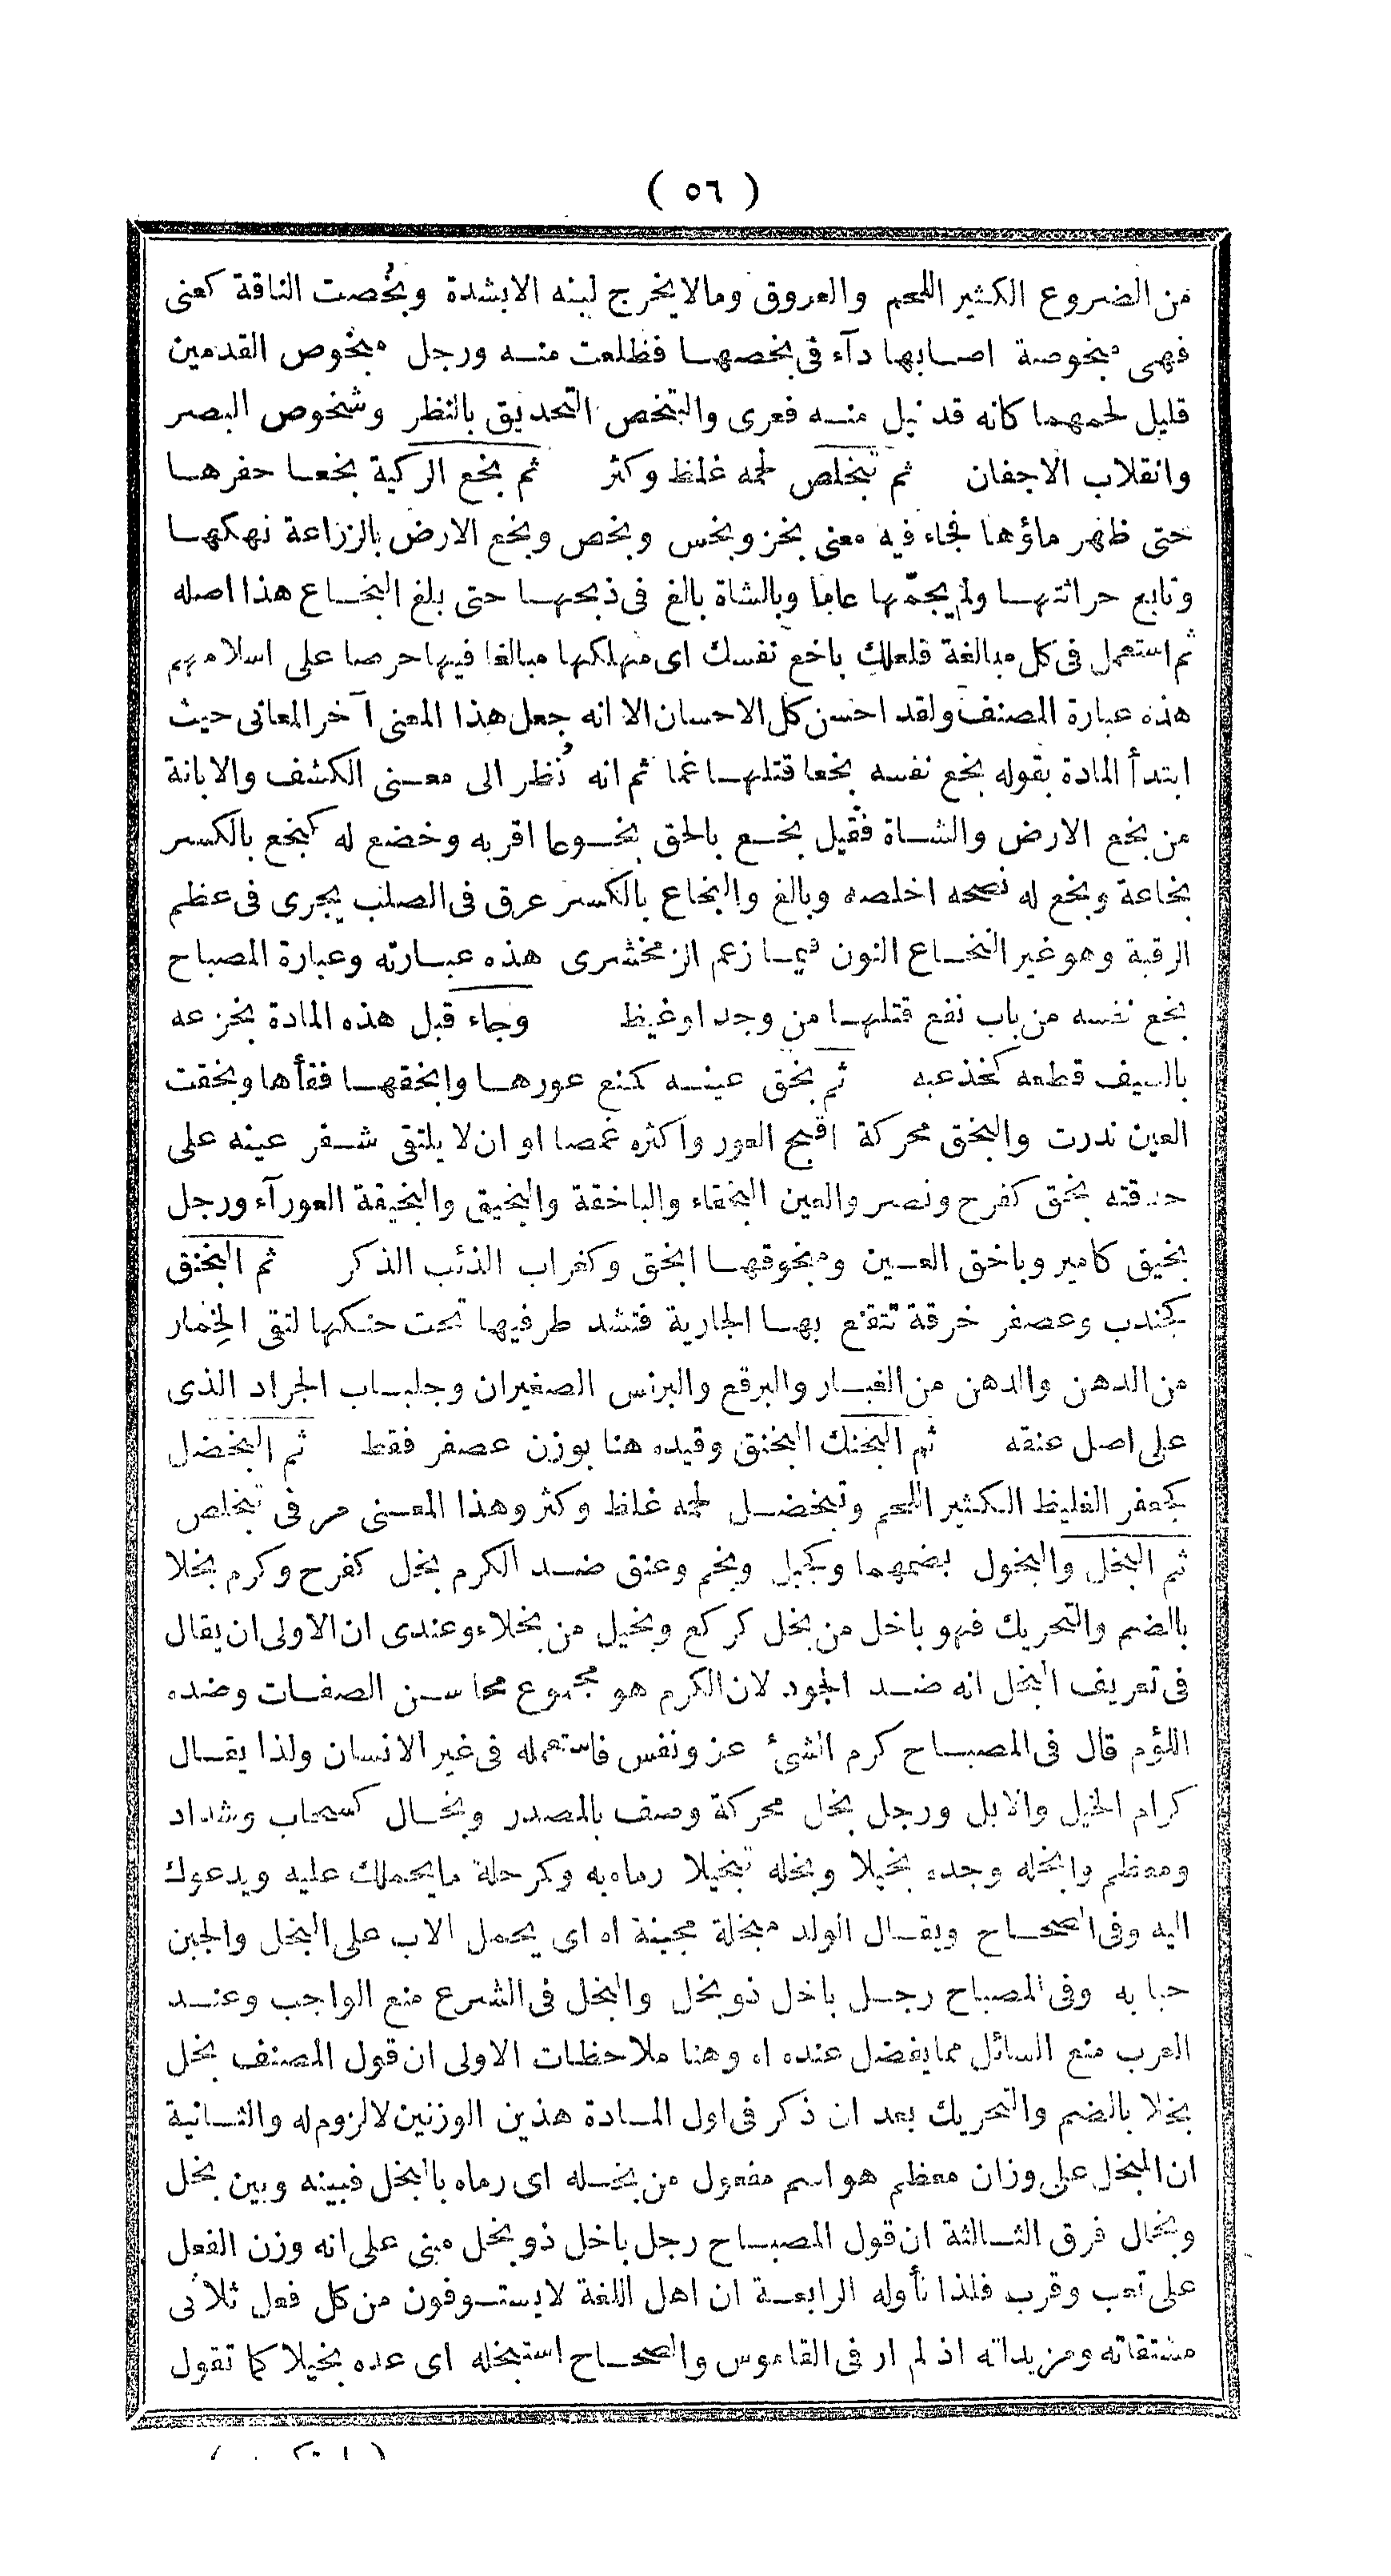 ( ٥٦ )
من الضروع الكثير اللحم والعروق ومالا يخرج لبنه الابشدة وبُخصت الناقة كعنى
فهى مبخوصة اصابها دآء فى بخصها فظلعت منه ورجل مبخوص القدمين
قليل لحمهما كانه قد نيل منه فعرى والتبخص التحديق بالنظر وشخوص البصر
وانقلاب الاجفان ثم تبخلص لحمه غلظ وكثر ثم بخع الركية بخعا حفرها
حتى ظهر ماؤها فجاء فيه معنى بخز وبخس وبخص وبخع الارض بالزراعة نهكها
وتابع حراثتها ولم يجمّها عاما وبالشاة بالغ فى ذبحها حتى بلغ البخاع هذا اصله
ثم استعمل فى كل مبالغة فلعلك باخع نفسك اى مهلكها مبالغا فيها حرصا على اسلامهم
هذه عبارة المصنف ولقد احسن كل الاحسان الا انه جعل هذا المعنى آخر المعانى حيث
ابتدأ المادة بقوله بخع نفسه بخعا قتلها غما ثم انه نُظر الى معنى الكشف والابانة
من بخع الارض والشاة فقيل بخع بالحق بخوعا اقر به وخضع له كبخع بالكسر
بخاعة وبخع له نصحه اخلصه وبالغ والبخاع بالكسر عرق فى الصلب يجرى فى عظم
الرقبة وهو غير النخاع النون فيما زعم الزمخشرى هذه عبارته وعبارة المصباح
بخع نفسه من باب نفع قتلها من وجد او غيظ وجاء قبل هذه المادة بخزعه
بالسيف قطعه كخذعبه ثم بخق عينه كمنع عورها وابخقها فقأها وبخقت
العين ندرت والبخق محركة اقبح العور واكثره غمصا او ان لا يلتقى شفر عينه على
حدقته بخق كفرح ونصر والعين البخقاء والباخقة والبخيق والبخيقة العورآء ورجل
بخيق كامير وباخق العين ومبخوقها ابخق وكغراب الذئب الذكر ثم البخنق
كجندب وعصفر خرقة تتقنع بها الجارية فتشد طرفيها تحت حنكها لتقى الخِمار
من الدهن والدهن من الغبار والبرقع والبرنس الصغيران وجلباب الجراد الذى
على اصل عنقه ثم البخنك البخنق وقيده هنا بوزن عصفر فقط ثم البخضل
كجعفر الغليظ الكثير اللحم وتبخضل لحمه غلظ وكثر وهذا المعنى مر فى تبخلص
ثم البخل والبخول بضمهما وكجبل ونجم وعنق ضد الكرم بخل كفرح وكرم بخلا
بالضم والتحريك فهو باخل من بخل كركع وبخيل من بخلاء وعندى ان الاولى ان يقال
فى تعريف البخل انه ضد الجود لان الكرم هو مجموع محاسن الصفات وضده
اللؤم قال فى المصباح كرم الشئ عز ونفس فاستعمله فى غير الانسان ولذا يقال
كرام الخيل والابل ورجل بخل محركة وصف بالمصدر وبخال كسحاب وشداد
ومعظم وابخله وجده بخيلا وبخله تبخيلا رماه به وكرحلة ما يحملك عليه ويدعوك
اليه وفى الصحاح ويقال الولد مبخلة مجبنة اه اى يحمل الاب على البخل والجبن
حبا به وفى المصباح رجل باخل ذو بخل والبخل فى الشرع منع الواجب وعند
العرب منع السائل مما يفضل عنده اه وهنا ملاحظات الاولى ان قول المصنف بخل
بخلا بالضم والتحريك بعد ان ذكر فى اول المادة هذين الوزنين لا لزوم له والثانية
ان المبخل على وزان معظم هو اسم مفعول من بخله اى رماه بالبخل فبينه وبين بخل
وبخال فرق الثالثة ان قول المصباح رجل باخل ذو بخل مبنى على انه وزن الفعل
على تعب وقرب فلذا نأوله الرابعة ان اهل اللغة لا يستوفون من كل فعل ثلاثى
مشتقاته ومزيداته اذ لم ار فى القاموس والصحاح استبخله اى عده بخيلا كما تقول